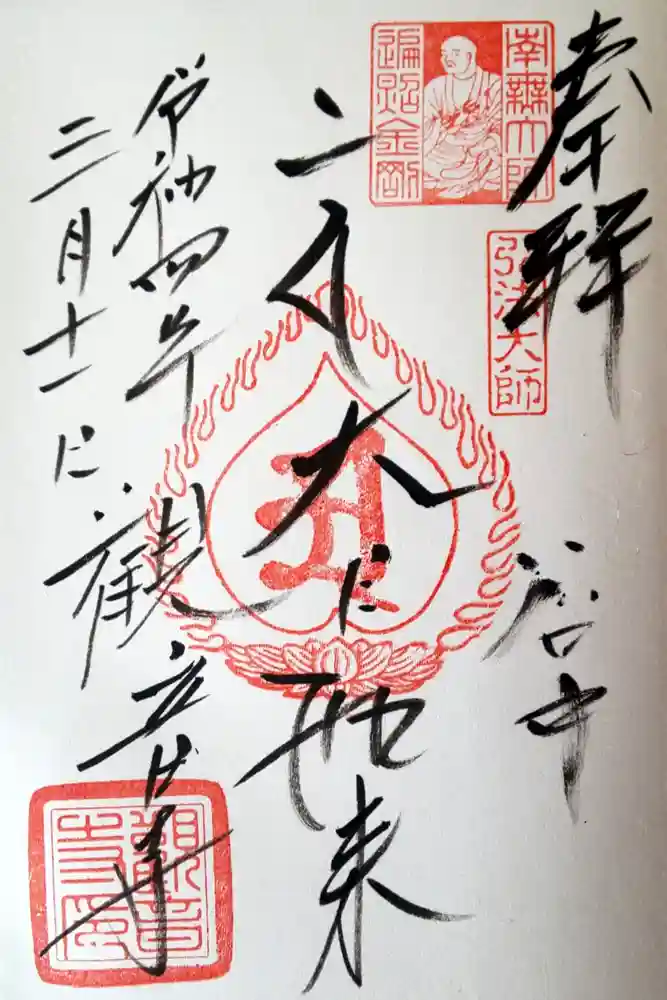 奉拝
谷中
南無大師
遍照金剛
弘法大師
大日如来
令和四年
三月十一日
観音寺